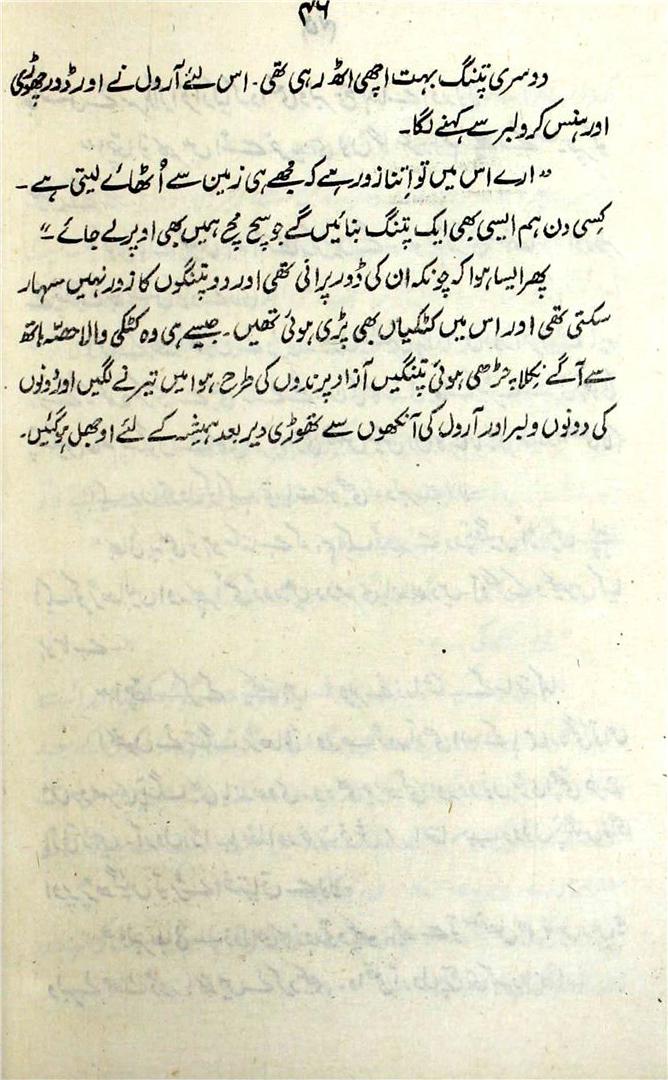 ۴۶
دوسری پتنگ بہت اچھی اٹھ رہی تھی۔ اس لئے آرول نے اور ڈور چھوڑی
اور ہنس کر ولبر سے کہنے لگا۔
"ارے اس میں تو اِتنا زور ہے کہ مجھے ہی زمین سے اُٹھائے لیتی ہے۔
کِسی دن ہم ایسی بھی ایک پتنگ بنائیں گے جو سچ مچ ہمیں بھی اوپر لے جائے۔"
پھر ایسا ہوا کہ چونکہ ان کی ڈور پرانی تھی اور دو پتنگوں کا زور نہیں سہار
سکتی تھی اور اس میں کٹکیاں بھی پڑی ہوئی تھیں۔ جیسے ہی وہ کٹکی والا حصّہ ہاتھ
سے آگے نِکلا چڑھی ہوئی پتنگیں آزاد پرندوں کی طرح ہوا میں تیرنے لگیں اور دونوں
کی دونوں ولبر اور آرول کی آنکھوں سے تھوڑی دیر بعد ہمیشہ کے لئے اوجھل ہو گئیں۔